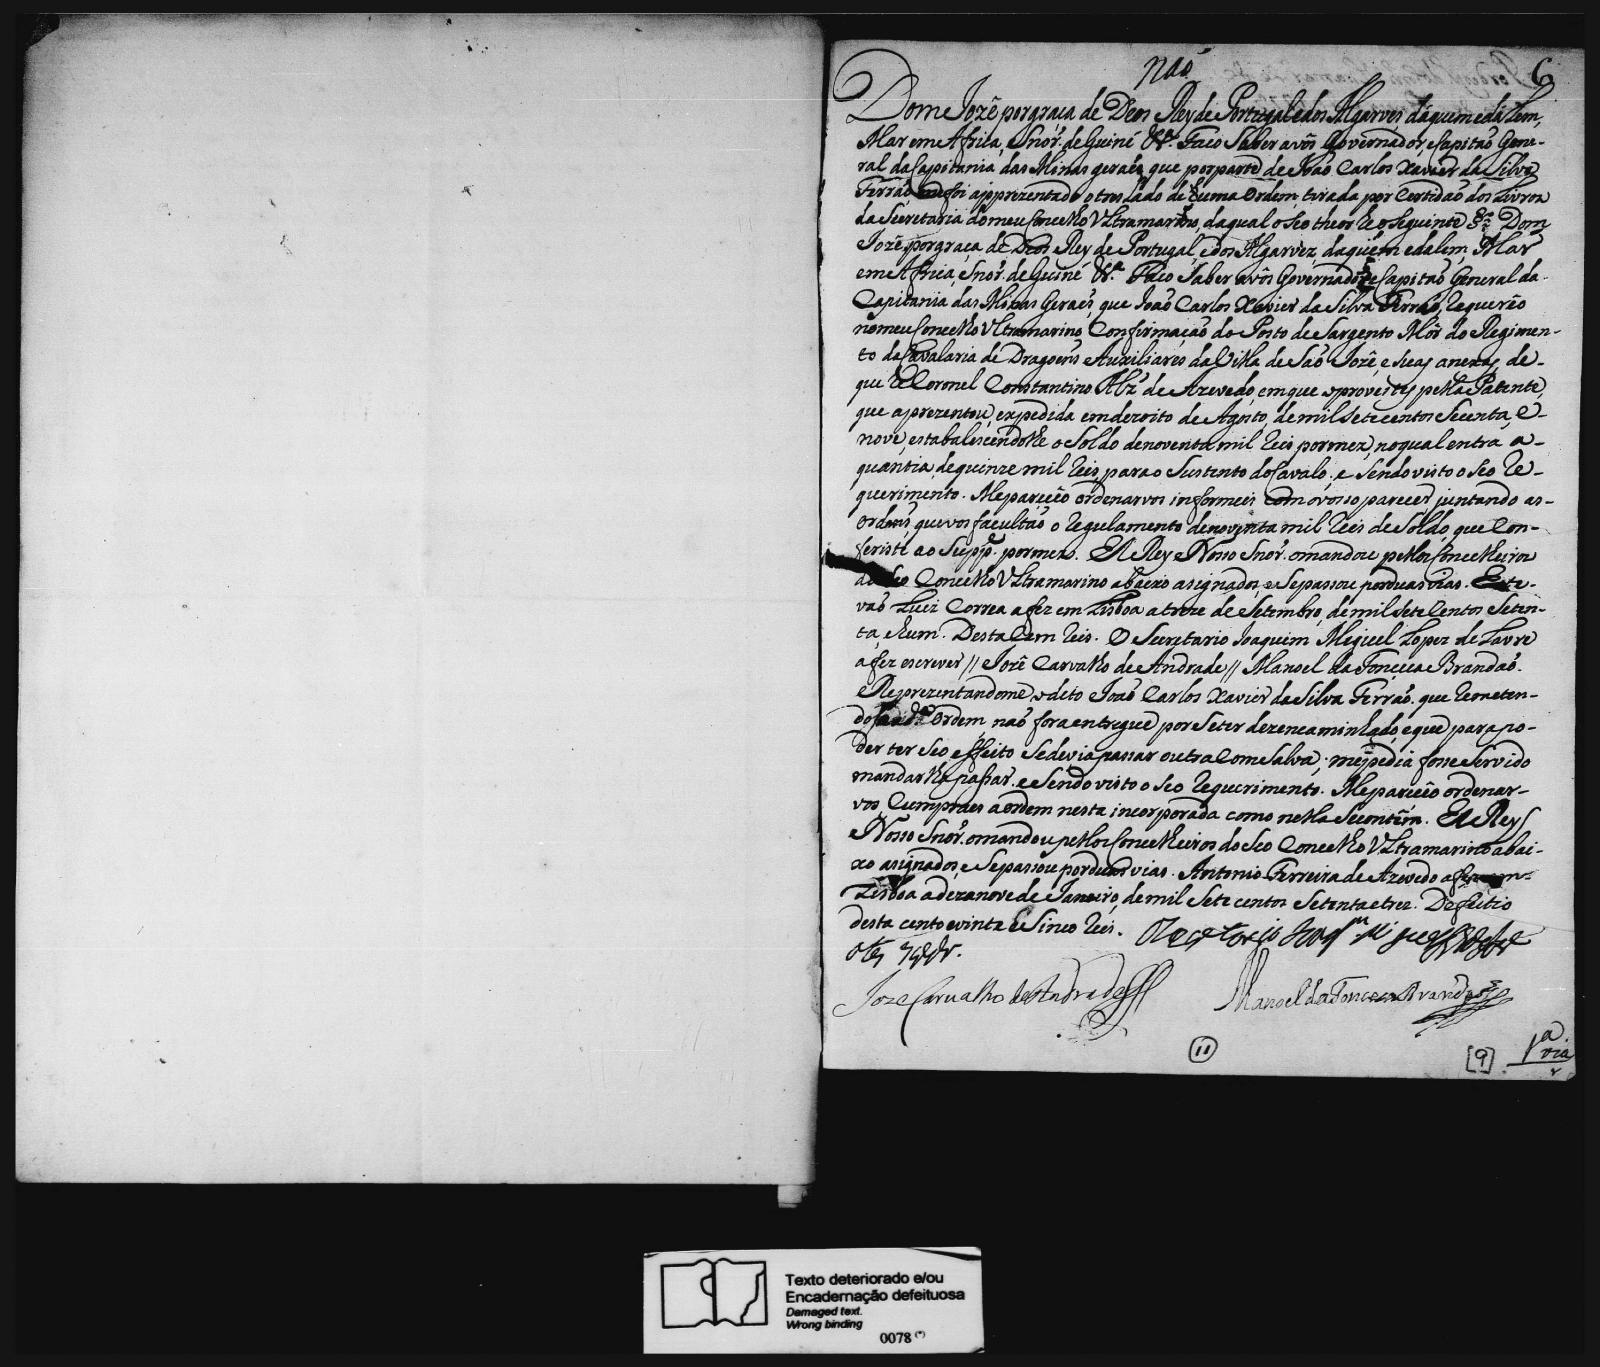 não
6
Dom Jozé por graça de Deos Rey de Portugal e dos Algarves daquem e dalem,
Mar em Africa, Snor. de Guiné &ª. Faço Saber a vós Governador, e Capitaõ Gene-
ral da Capitania das Minas geraes, que por parte de Joaõ Carlos Xavier da Silva
Ferraõ me foi apprezentado o treslado de huma Ordem, tirada por Certidaõ dos Livros
da Secretaria do meu Concelho Ultramarino, da qual o seo theor he o seguinte Dom
Jozé por graça de Deos Rey de Portugal, e dos Algarvez, daquem e dalem, Mar
em Africa, Snor. de Guiné &ª. Faço Saber a vós Governador, e Capitaõ General da
Capitania das Minas Geraes, que Joaõ Carlos Xavier da Silva Ferraõ, Requereo
no meu Concelho Ultramarino Confirmaçaõ do Posto de Sargento Mór do Regimen-
to da Cavalaria de Dragoens Auxiliares da Villa de Saõ Jozé, e suas anexas, de-
que he Coronel Constantino Alz' de Azevedo, em que o provestes pella Patente,
que aprezentou, expedida em dezoito de Agosto, de mil sete centos Secenta, e-
nove, estabalescendolhe o Soldo de noventa mil Reis por mez, no qual entra, a-
quantia de quinze mil Reis, para o Sustento do Cavalo; e Sendo visto o seo Re-
querimento. Me pareceo ordenarvos informeis com o vosso parecer, juntando as-
Ordens, que vos facultaõ o Regulamento de noventa mil Reis de Soldo, que Con-
feriste ao Supp.e por mez. El Rey Nosso Snor. o mandou pellos Concelheiros
do seo Concelho Ultramarino abaixo asignados, e Se passou por duas vias. Este-
vaõ Luiz Correa a fez em Lisboa a treze de Setembro, de mil Sete Centos Seten-
ta, e hum. Desta Cem Reis. O Secretario Joaquim Miguel Lopez de Lavre
a fez escrever // Jozé Carvalho de Andrade // Manoel da Fonceca Brandaõ.
e Reprezentandome, o dito Joaõ Carlos Xavier da Silva Ferraõ, que Remeten-
dose a d.ª Ordem, naõ fora entregue por se ter dezencaminhado, e que para po-
der ter seo effeito se devia passar outra Com Salva, me pedia fosse Servido
mandar lha passar. e Sendo visto o seo Requerimento. Me pareceo ordenar-
vos Cumpraes a ordem nesta incorporada como nella se contém. El Rey
Nosso Snor. o mandou pellos Concelheiros do seo Concelho Ultramarino abai-
xo asignados, e Se passou por duas vias. Antonio Ferreira de Azevedo a fez em
Lisboa a dezanove de Janeiro, de mil Sete centos Setenta e trez. De feitio
desta cento e vinte e Sinco Reis. O Secretario Joaq.m Miguel Lopes de Lavre
a fez escrever.
Joze Carvalho de Andrade
Manoel da Fonceca Brandaõ
11
[9]
1ª
via
Texto deteriorado e/ou
Encadernação defeituosa
Damaged text.
Wrong binding
0078 (*)